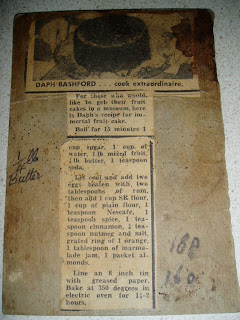 DAPH BASHFORD . . . cook extraordinaire.
For those who would
like to get their fruit
cakes in a museum, here
is Daph's recipe for im-
mortal fruit cake.
Boil for 15 minutes 1
cup sugar, 1 cup of
water, 1 lb mixed fruit,
1 lb butter, 1 teaspoon
soda.
Let cool and add two
eggs beaten with two
tablespoons of rum,
then add 1 cup SR flour,
1 cup of plain flour, 1
teaspoon Nescafe, 1
teaspoon spice, 1 tea-
spoon cinnamon,
spoon nutmeg and salt,
grated ring of 1 orange,
1 tablespoon of marma-
lade jam, 1 packet al-
monds.
Line an 8 inch tin
with greased paper.
Bake at 350 degrees in
electric oven for
2 hours.
Butter
160